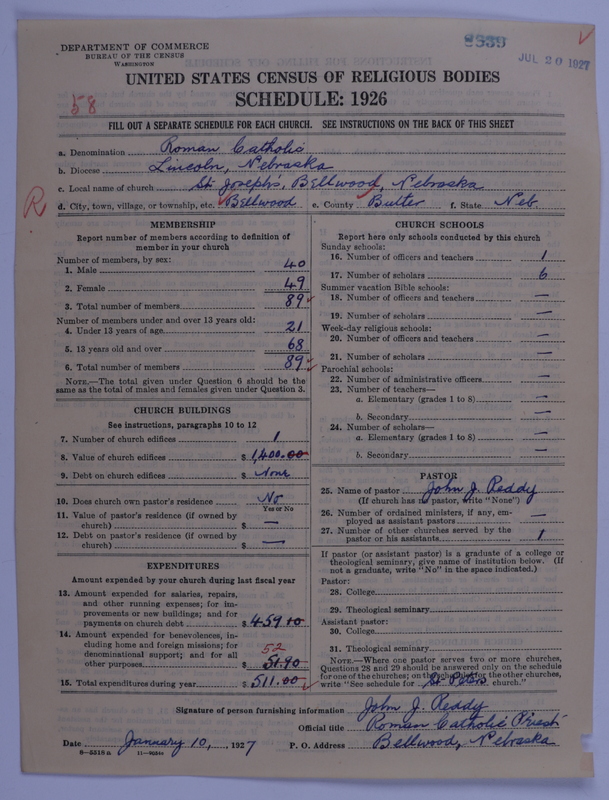 DEPARTMENT OF COMMERCE
BUREAU OF THE CENSUS
WASHINGTON
8839
JUL 20 1927
UNITED STATES CENSUS OF RELIGIOUS BODIES
SCHEDULE: 1926
58
FILL OUT A SEPARATE SCHEDULE FOR EACH CHURCH. SEE INSTRUCTIONS ON THE BACK OF THIS SHEET
a. Denomination Roman Catholic
b. Diocese Lincoln, Nebraska
c. Local name of church St. Joseph's, Bellwood, Nebraska
R d. City, town, village, or township, etc. Bellwood e. County Butler f. State Neb.
MEMBERSHIP
Report number of members according to definition of
member in your church
Number of members, by sex:
1. Male 40
2. Female 49
3. Total number of members 89
Number of members under and over 13 years old:
4. Under 13 years of age 21
5. 13 years old and over 68
6. Total number of members 89
NOTE.—The total given under Question 6 should be the
same as the total of males and females given under Question 3.
CHURCH BUILDINGS
See instructions, paragraphs 10 to 12
7. Number of church edifices 1
8. Value of church edifices $ 1,400.00
9. Debt on church edifices $ None
10. Does church own pastor's residence No
Yes or No
11. Value of pastor's residence (if owned by
church) $ —
12. Debt on pastor's residence (if owned by
church) $ —
EXPENDITURES
Amount expended by your church during last fiscal year
13. Amount expended for salaries, repairs,
and other running expenses; for im-
provements or new buildings; and for
payments on church debt $ 459.10
14. Amount expended for benevolences, in-
cluding home and foreign missions; for
denominational support; and for all
other purposes $ 51.90
52
15. Total expenditures during year $ 511.00
CHURCH SCHOOLS
Report here only schools conducted by this church
Sunday schools:
16. Number of officers and teachers 1
17. Number of scholars 6
Summer vacation Bible schools:
18. Number of officers and teachers —
19. Number of scholars —
Week-day religious schools:
20. Number of officers and teachers —
21. Number of scholars —
Parochial schools:
22. Number of administrative officers —
23. Number of teachers—
a. Elementary (grades 1 to 8) —
b. Secondary —
24. Number of scholars—
a. Elementary (grades 1 to 8) —
b. Secondary —
PASTOR
25. Name of pastor John J. Reddy
(If church has no pastor, write "None")
26. Number of ordained ministers, if any, em-
ployed as assistant pastors —
27. Number of other churches served by the
pastor or his assistants 1
If pastor (or assistant pastor) is a graduate of a college or
theological seminary, give name of institution below. (If
not a graduate, write "No" in the space indicated.)
Pastor:
28. College
29. Theological seminary
Assistant pastor:
30. College
31. Theological seminary
NOTE.—Where one pastor serves two or more churches,
Questions 28 and 29 should be answered only on the schedule
for one of the churches; on the schedule for the other churches,
write "See schedule for St Peters church."
Signature of person furnishing information John J. Reddy
Official title Roman Catholic Priest
Date January 10, 1927 P. O. Address Bellwood, Nebraska